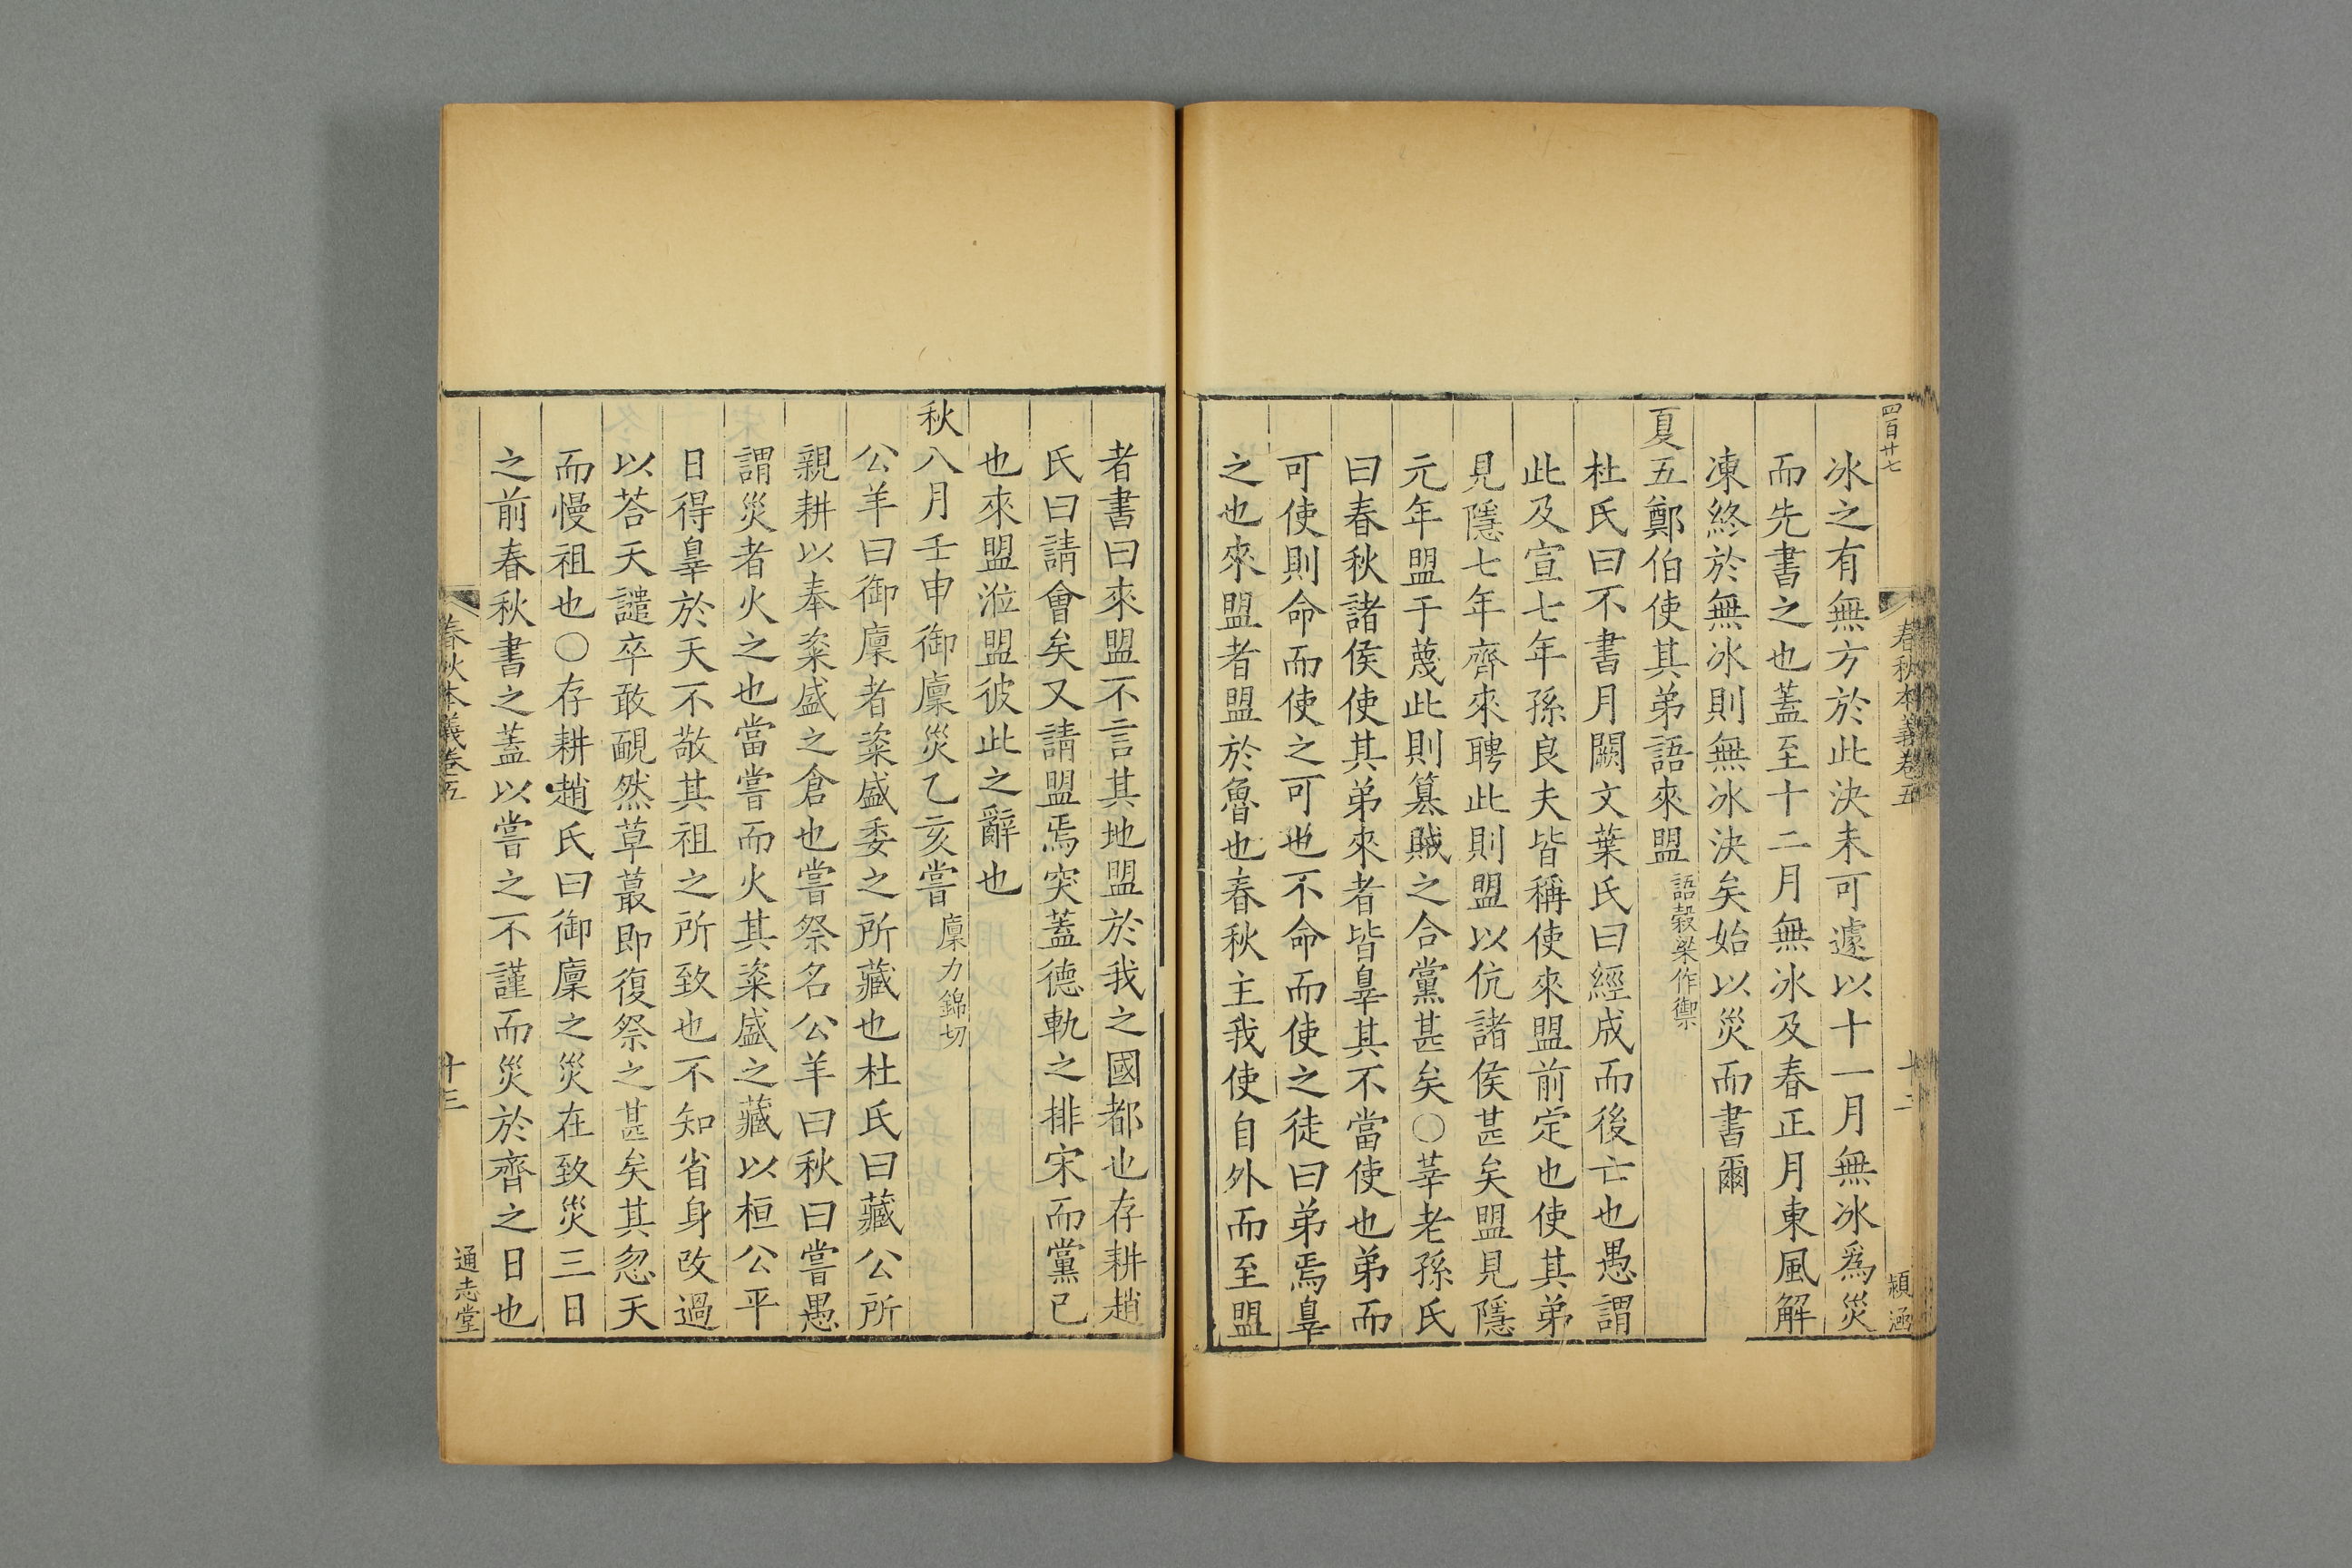 四百廿七
春秋本義卷五
十二
穎涵
冰之有無方於此決未可遽以十一月無冰爲災
而先書之也蓋至十二月無冰及春正月東風解
凍終於無冰則無冰決矣始以災而書爾
夏五鄭伯使其弟語來盟語穀梁作禦
杜氏曰不書月闕文葉氏曰經成而後亡也愚謂
此及宣七年孫良夫皆稱使來盟前定也使其弟
見隱七年齊來聘此則盟以伉諸侯甚矣盟見隱
元年盟于蔑此則篡賊之合黨甚矣○莘老孫氏
曰春秋諸侯使其弟來者皆辠其不當使也弟而
可使則命而使之可也不命而使之徒曰弟焉辠
之也來盟者盟於魯也春秋主我使自外而至盟
者書曰來盟不言其地盟於我之國都也存耕趙
氏曰請會矣又請盟焉突蓋德軌之排宋而黨己
也來盟涖盟彼此之辭也
秋八月壬申御廩災乙亥嘗廩力錦切
公羊曰御廩者粢盛委之所藏也杜氏曰藏公所
親耕以奉粢盛之倉也嘗祭名公羊曰秋曰嘗愚
謂災者火之也當嘗而火其粢盛之藏以桓公平
日得辠於天不敬其祖之所致也不知省身改過
以荅天譴卒敢覥然草蕞即復祭之甚矣其忽天
而慢祖也○存耕趙氏曰御廩之災在致災三日
之前春秋書之蓋以嘗之不謹而災於齊之日也
春秋本義卷五
十三
通志堂